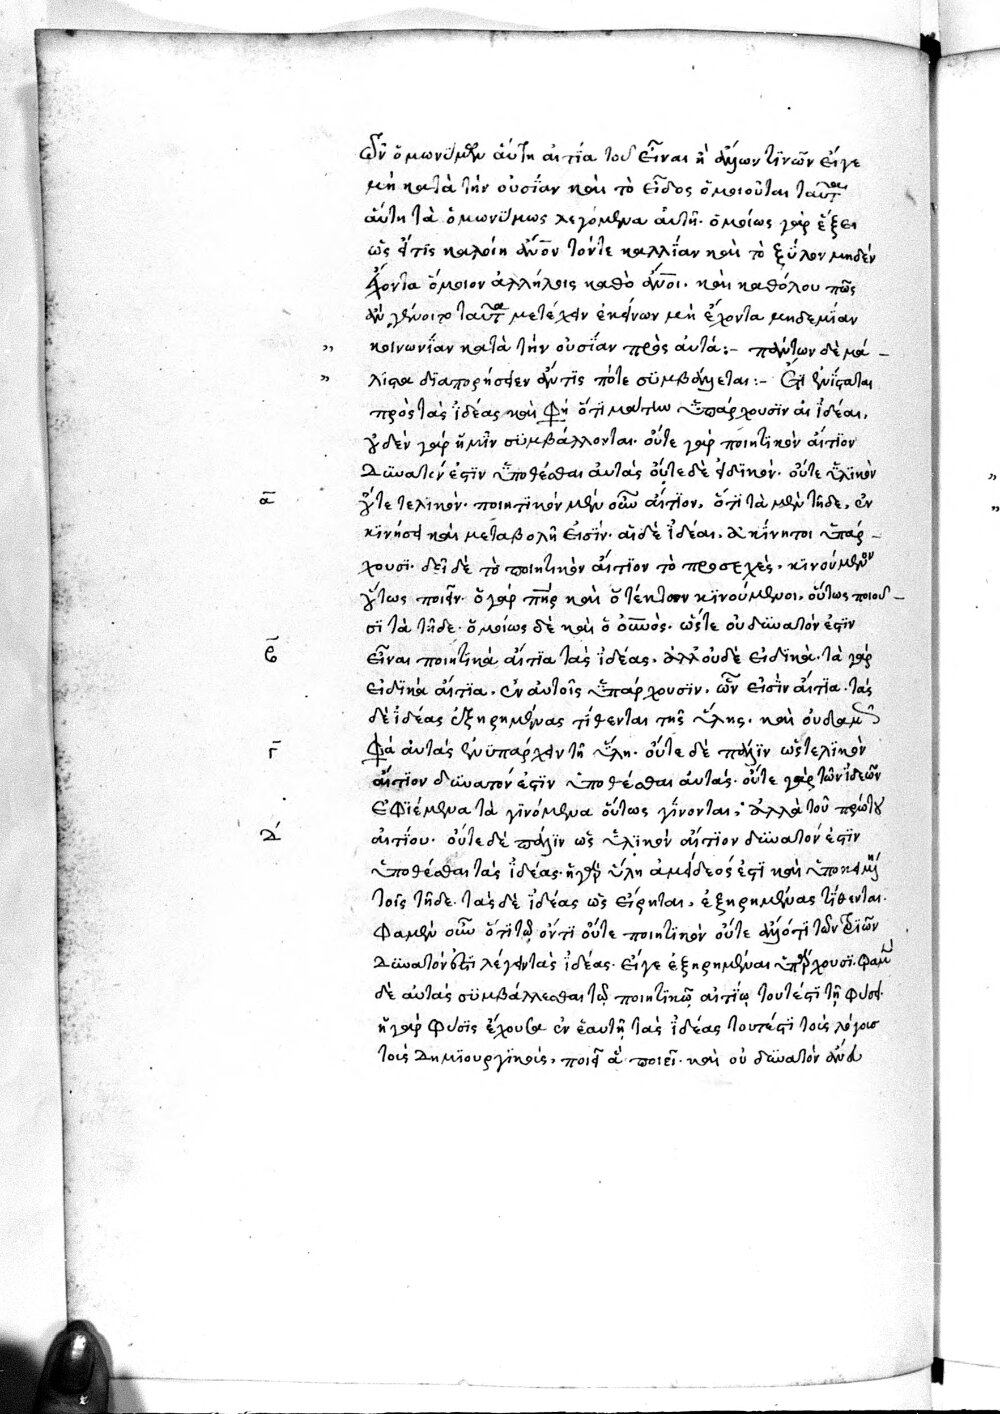 ὧν ὁμωνύμων αὐτη αἰτία τοῦ εἶναι ἢ ἄλλων τινῶν εἴγε
μὴ κατὰ τὴν οὐσίαν καὶ τὸ εἶδος ὁμοιοῦται ταῦτα
αὐτῆ τὰ ὁμωνύμως λεγόμενα αὐτῆ· ὁμοίως γὰρ ἕξει
ὡς εἴ τις καλοίη ἄνον τόντε καλλίαν καὶ τὸ ξύλον μηδὲν
ἔχοντα ὅμοιον ἀλλήλοις καθὸ ἄνοι· καὶ καθόλου πῶς
ἂν γένοιτο ταῦτα μετέχειν ἐκείνων μὴ ἔχοντα μηδεμίαν
" κοινωνίαν κατὰ τὴν οὐσίαν πρὸς αὐτά:– πάντων δὲ μά–
" λιστα διαπορήσειεν ἄν τις πότε συμβάλλεται:– Ἔτι ἐνίσταται
πρὸς τὰς ἰδέας καὶ φη ὅτι μάτην ὑπάρχουσιν αἱ ἰδέαι,
οὐδὲν γὰρ ἡμῖν συμβάλλονται· οὔτε γὰρ ποιητικὸν αἴτιον
δυνατόν ἐστιν ὑποθέσθαι αὐτὰς οὔτε δὲ εἰδικὸν· οὔτε ὑλικὸν
α οὔτε τελικὸν· ποιητικὸν μὲν οὖν αἴτιον, ὅτι τὰ μὲν τῆδε, ἐν
κινήσει καὶ μεταβολῆ εἰσίν· αἱ δὲ ἰδέαι, ἀκίνητοι ὑπάρ–
χουσι· δεῖ δὲ τὸ ποιητικὸν αἴτιον τὸ προσεχὲς, κινούμενον
οὕτως ποιεῖν· ὁ γὰρ πηρ καὶ ὁ τέκτων κινούμενοι, οὕτως ποιοῦ–
σι τὰ τῆδε· ὁμοίως δὲ καὶ ὁ οὐνος· ὥστε οὐ δυνατόν ἐστιν
β εἶναι ποιητικὰ αἴτια τὰς ἰδέας, ἀλλ' οὐδὲ εἰδικὰ· τὰ γὰρ
εἰδικὰ αἴτια, ἐν αὐτοῖς ὑπάρχουσιν, ὧν εἰσὶν αἴτια· τὰς
δὲ ἰδέας ἐξηρημένας τίθενται τῆς ὕλης· καὶ οὐδαμῶς
γ φα αὐτὰς ἐνυπάρχειν τῆ ὕλη· οὔτε δὲ πάλιν ὡς τελικὸν
αἴτιον δυνατόν ἐστιν ὑποθέσθαι αὐτάς· οὔτε γὰρ τῶν ἰδεῶν
ἐφιέμενα τὰ γινόμενα οὕτως γίνονται, ἀλλὰ τοῦ πρώτου
δ αἰτίου· οὔτε δὲ πάλιν ὡς ὑλικὸν αἴτιον δυνατόν ἐστιν
ὑποθέσθαι τὰς ἰδέας· ἡ γὰρ ὕλη ἀμείδεός ἐστι καὶ ὑποκειμένη
τοῖς τῆδε· τὰς δὲ ἰδέας ὡς εἴρηται, ἐξηρημένας τίθενται·
φαμὲν οὖν ὅτι τῷ ὄντι οὔτε ποιητικὸν οὔτε ἄλλό τι τῶν αἰτιῶν
δυνατόν ἐστι λέγειν τὰς ἰδέας· εἴγε ἐξηρημέναι ὑπάρχουσι· φαμὲν
δὲ αὐτὰς συμβάλλεσθαι τῷ ποιητικῷ αἰτίῳ τουτέστι τῇ φύσει·
ἡ γὰρ φύσις ἔχουσα ἐν ἑαυτῇ τὰς ἰδέας τουτέστι τοὺς λόγους
τοὺς δημιουργικούς, ποιεῖ ἃ ποιεῖ· καὶ οὐ δυνατὸν ἄνευ